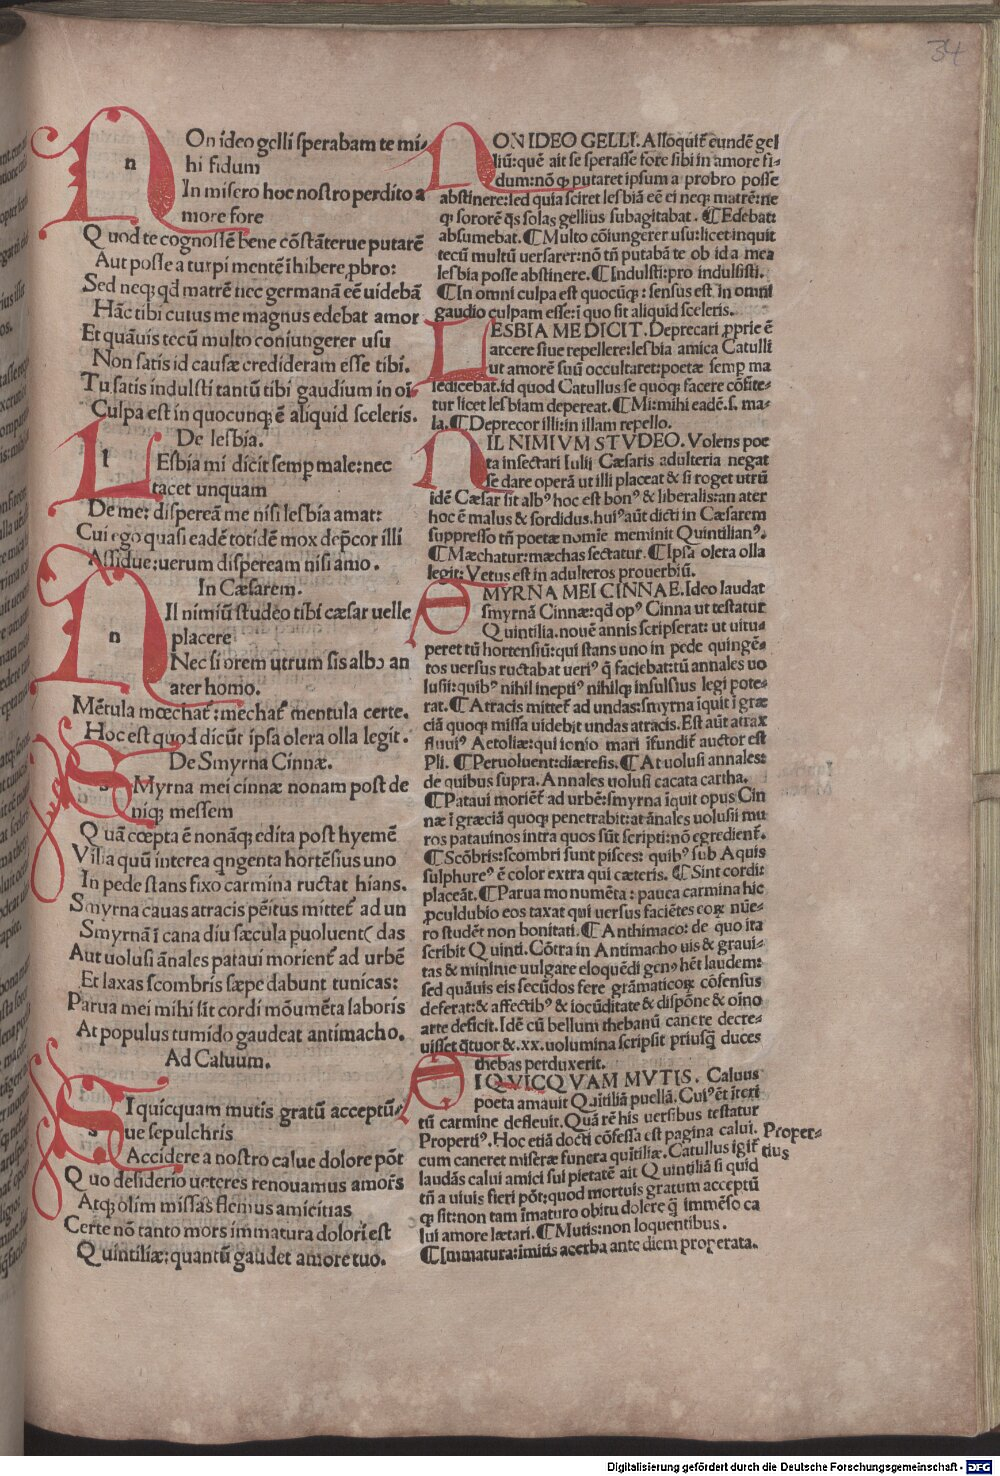 34
On ideo gelli sperabam te mi-
hi fidum
In misero hoc nostro perdito a
more fore
Quod te cognossē bene cōstāterue putarē
Aut posse a turpi mentē īhibere ꝓbro:
Sed neqꝫ qd matrē nec germanā eē uidebā
Hāc tibi cuius me magnus edebat amor
Et quāuis tecū multo coniungerer usu
Non satis id causæ credideram esse tibi.
Tu satis indulsti tantū tibi gaudium in oī
Culpa est in quocunqꝫ ē aliquid sceleris.
De lesbia.
l Esbia mi dicit semp male: nec
tacet unquam
De me: dispereā me nisi lesbia amat:
Cui ego quasi eadē totidē mox dep̄cor illi
Assidue: uerum dispeream nisi amo.
In Cæsarem.
Il nimiū studeo tibi cæsar uelle
n placere
Nec si orem utrum sis albo an
ater homo.
Mētula mœchat̃: mechat̃ mentula certe.
Hoc est quod dicūt ipsa olera olla legit.
De Smyrna Cinnæ.
s Myrna mei cinnæ nonam post de
niqꝫ messem
Quā cœpta ē nonāqꝫ edita post hyemē
Vilia quū interea qngenta hortēsius uno
In pede stans fixo carmina ructat hians.
Smyrna cauas atracis pēitus mittet̃ ad un
Smyrnā ī cana diu sæcula puoluent (das
Aut uolusi ānales pataui morient̃ ad urbē
Et laxas scombris sæpe dabunt tunicas:
Parua mei mihi sīt cordi mōumēta laboris
At populus tumido gaudeat antimacho.
Ad Caluum.
I quicquam mutis gratū acceptū-
s ue sepulchris
Accidere a nostro calue dolore pōt
Quo desiderio ueteres renouamus amor̄s
Atqꝫ olim missas flemus amicitias
Certe nō tanto mors immatura dolori est
Quintiliæ: quantū gaudet amore tuo.
ON IDEO GELLI. Alloquit̃ eundē gel
liū: quē ait se sperasse fore sibi in amore fi-
dum: nō qꝫ putaret ipsum a probro posse
abstinere: sed quia sciret lesbiā eē ei neqꝫ matrē: ne
qꝫ sororē q̄s solas gellius subagitabat. ¶Edebat:
absumebat. ¶Multo cōiungerer usu: licet inquit
tecū multū uersarer: nō tñ putabā te ob id a mea
lesbia posse abstinere. ¶Indulsti: pro indulsisti.
¶In omni culpa est quocūqꝫ: sensus est in omni
gaudio culpam esse: ī quo sit aliquid sceleris.
ESBIA ME DICIT. Deprecari ꝓprie ē
arcere siue repellere: lesbia amica Catulli
ut amorē suū occultaret: poetæ semp ma
ledicebat. id quod Catullus se quoqꝫ facere cōfite-
tur licet lesbiam depereat. ¶Mi: mihi eadē. s. ma-
la. ¶Deprecor illi: in illam repello.
IL NIMIVM STVDEO. Volens poe
ta insectari Iulii Cæsaris adulteria negat
se dare operā ut illi placeat & si roget utrū
idē Cæsar sit albꝰ hoc est bonꝰ & liberalis: an ater
hoc ē malus & sordidus. huiꝰ aūt dicti in Cæsarem
suppresso tñ poetæ nomīe meminit Quintilianꝰ.
¶Mæchatur: mæchas sectatur. ¶Ipsa olera olla
legit: Vetus est in adulteros prouerbiū.
MYRNA MEI CINNAE. Ideo laudat
smyrnā Cinnæ: qd opꝰ Cinna ut testatur
Quintilia. nouē annis scripserat: ut uitu-
peret tū hortensiū: qui stans uno in pede quingē-
tos uersus ructabat ueriꝰ q̄ faciebat: tū annales uo
lusii: quibꝰ nihil ineptiꝰ nihilqꝫ insulsius legi pote-
rat. ¶Atracis mittet̃ ad undas: smyrna īquit ī græ
ciā quoqꝫ missa uidebit undas atracis. Est aūt atrax
fluuiꝰ Aetoliæ: qui ionio mari īfundit̃ auctor est
Pli. ¶Peruoluent: diæresis. ¶At uolusi annales:
de quibus supra. Annales uolusi cacata cartha.
¶Pataui moriēt̃ ad urbē: smyrna īquit opus Cin
næ ī græciā quoqꝫ penetrabit: at ānales uolusii mu
ros patauinos intra quos sūt scripti: nō egredient̃.
¶Scōbris: scombri sunt pisces: quibꝰ sub Aquis
sulphureꝰ ē color extra qui cæteris. ¶Sint cordi:
placeāt. ¶Parua monumēta: pauca carmina hic
ꝓculdubio eos taxat qui uersus faciētes eorꝝ nūe-
ro studēt non bonitati. ¶Anthimaco: de quo ita
scribit Quinti. Cōtra in Antimacho uis & graui-
tas & minime uulgare eloquēdi genꝰ hēt laudem:
sed quāuis eis secūdos fere grāmaticorꝝ cōsensus
deferat: & affectibꝰ & iocūditate & dispōne & oīno
arte deficit. Idē cū bellum thebanū canere decre-
uisset q̄tuor &. xx. uolumina scripsit priusq̄ duces
thebas perduxerit.
I QVICQVAM MVTIS. Caluus
poeta amauit Quītiliā puellā. Cuiꝰ ēt īteri
tū carmine defleuit. Quā rē his uersibus testatur
Propertiꝰ. Hoc etiā docti cōfessa est pagina calui. Proper-
cum caneret miseræ funera quītiliæ. Catullus igit̃ tius
laudās calui amici sui pietatē ait Quintiliā si quid
tñ a uiuis fieri pōt: quod mortuis gratum acceptū
qꝫ sit: non tam īmaturo obitu dolere q̄ immēso ca
lui amore lætari. ¶Mutis: non loquentibus.
¶Immatura: imitis acerba ante diem properata.
Digitalisierung gefördert durch die Deutsche Forschungsgemeinschaft - DFG